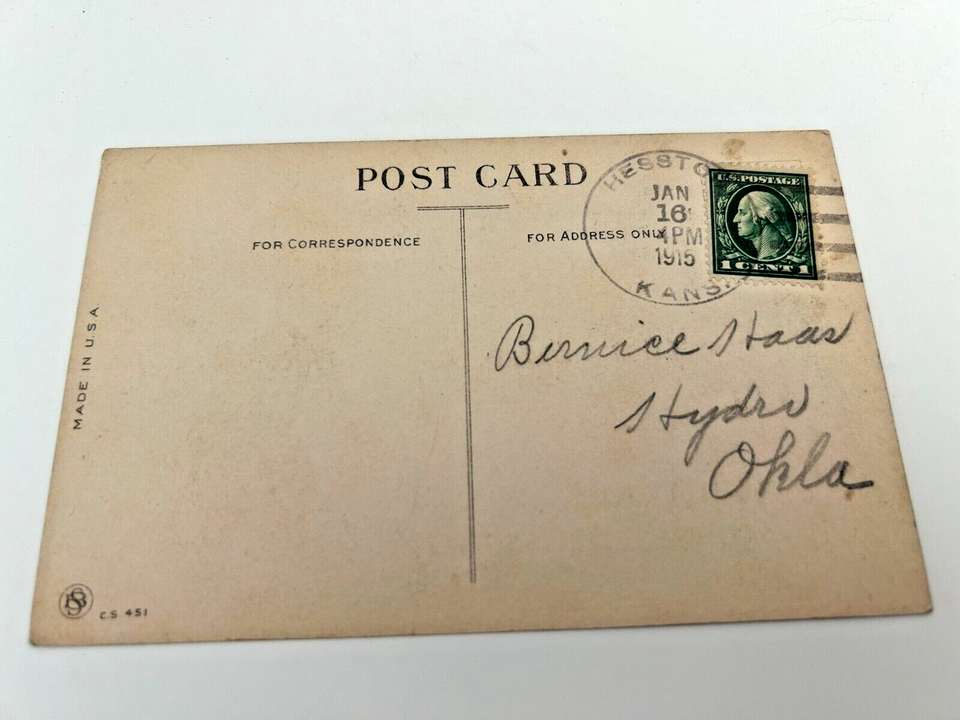 POST CARD
FOR CORRESPONDENCE
FOR ADDRESS ONLY
HESSTO
JAN
16
PM
1915
KANS.
U.S. POSTAGE
1 CENT 1
Bernice Haas
Hydro
Okla
MADE IN U.S.A.
C.S. 451